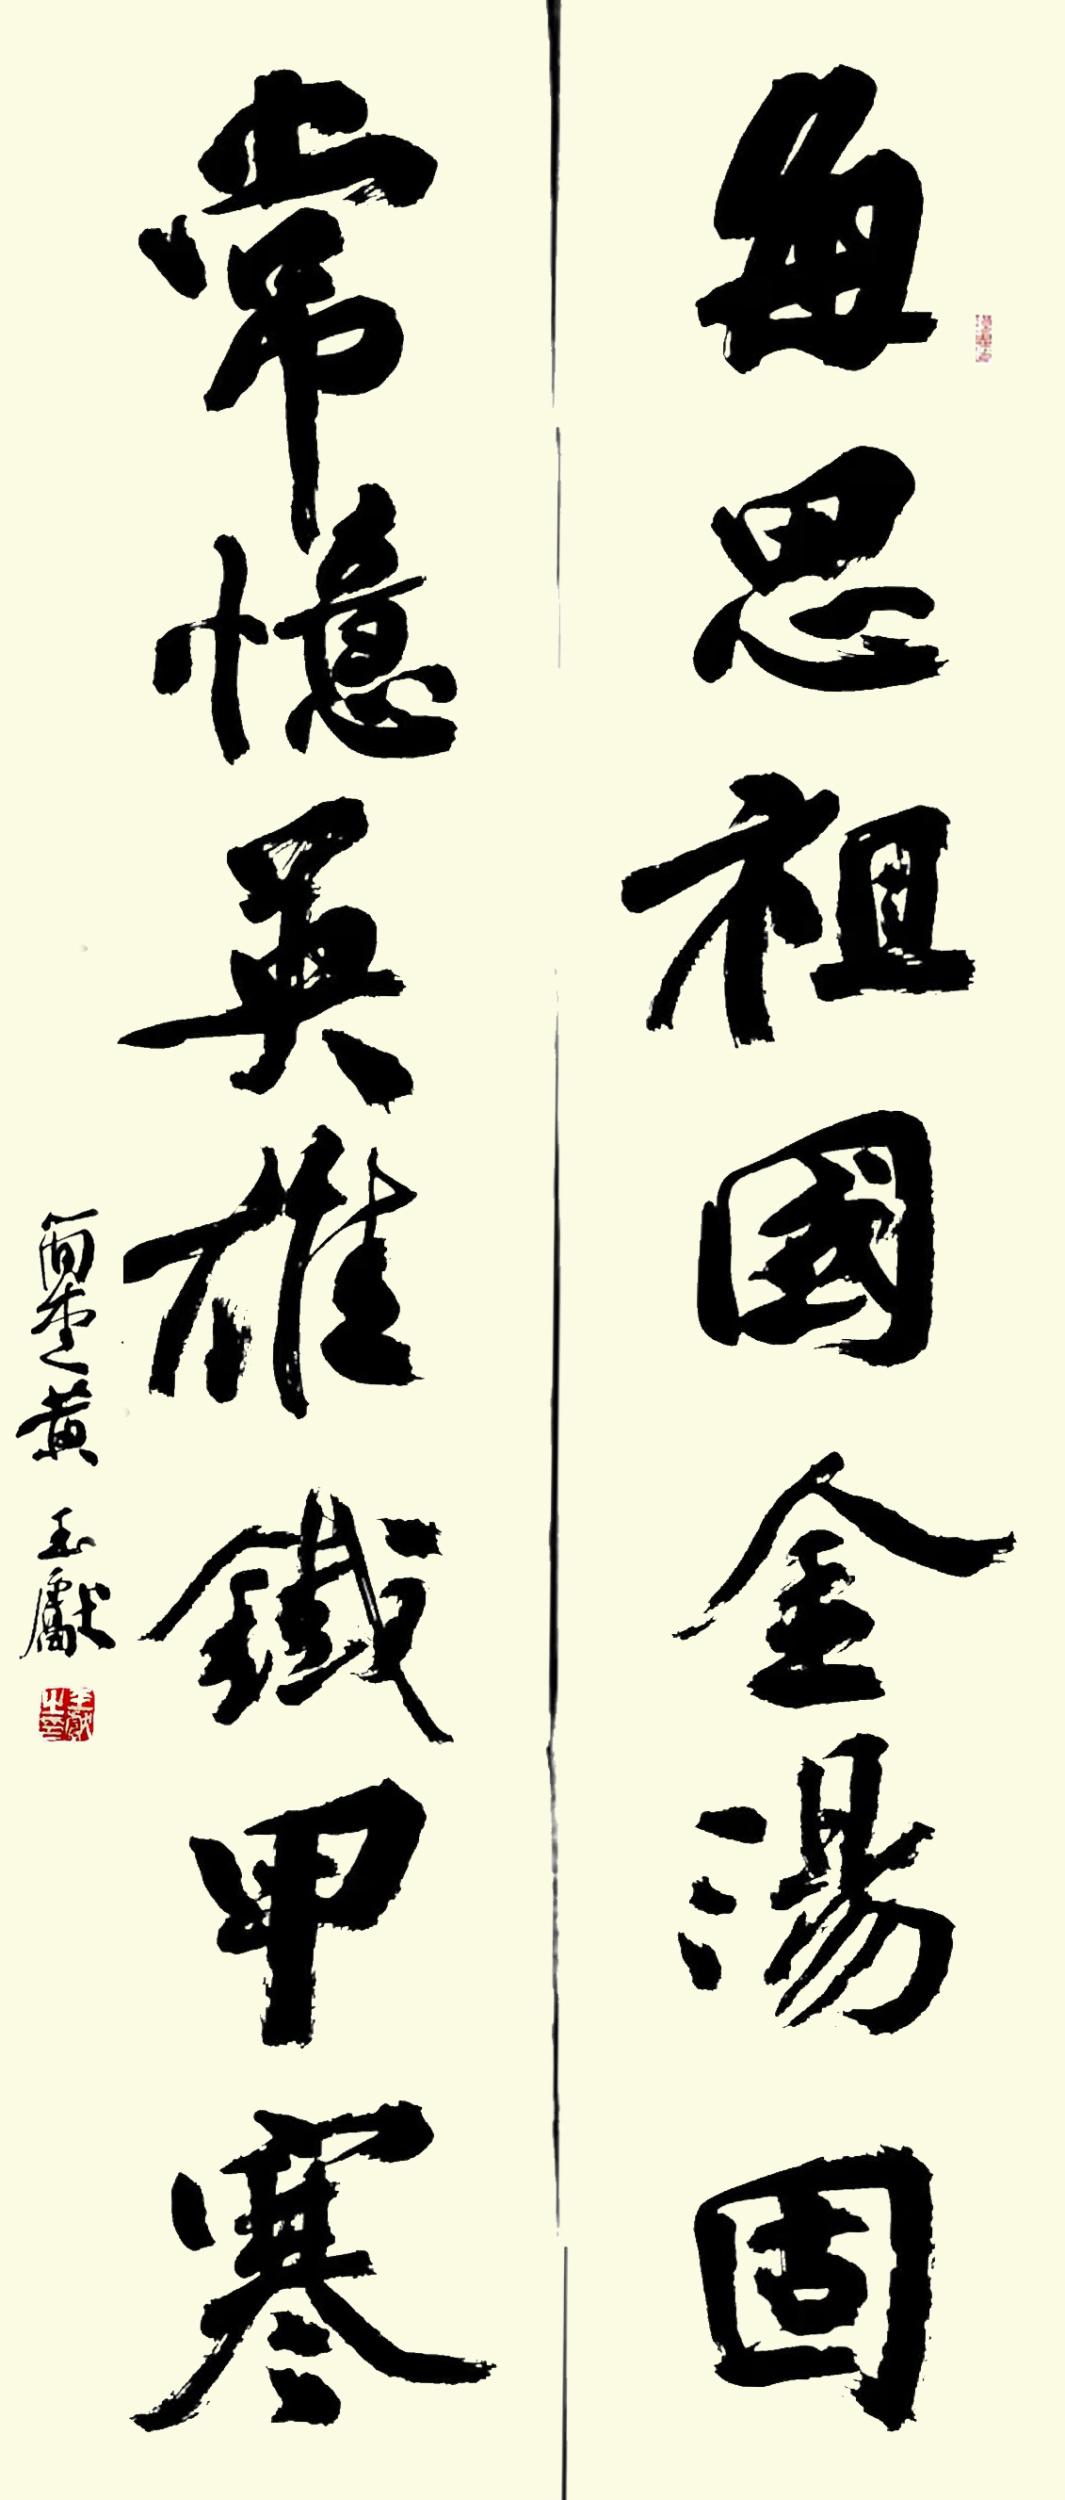 每思祖國金湯固
常憶英雄鐵甲寒
黃玉獻